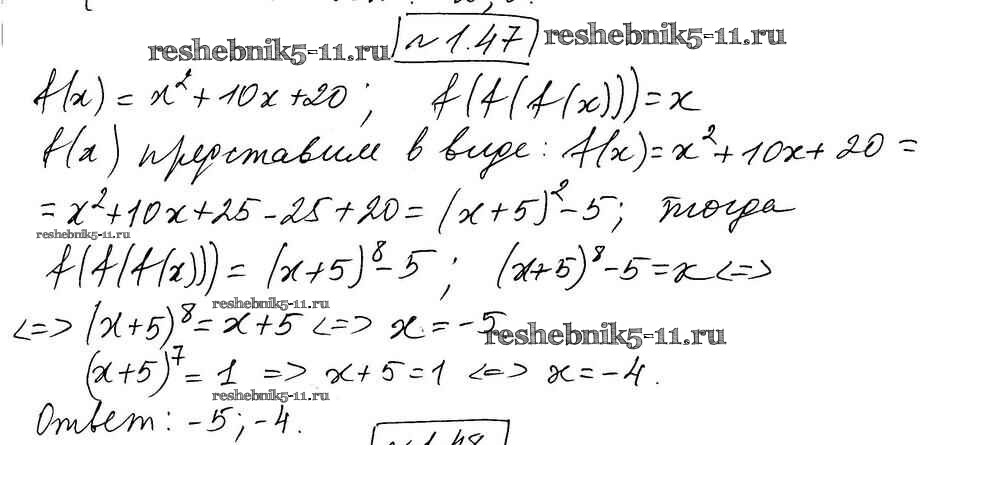 reshebnik5-11.ru №1.47 reshebnik5-11.ru
f(x) = x² + 10x + 20; f(f(f(x))) = x
f(x) представим в виде: f(x) = x² + 10x + 20 =
= x² + 10x + 25 - 25 + 20 = (x+5)² - 5; тогда
reshebnik5-11.ru
f(f(f(x))) = (x+5)⁸ - 5; (x+5)⁸ - 5 = x <=>
reshebnik5-11.ru
<=> (x+5)⁸ = x + 5 <=> x = -5
reshebnik5-11.ru
(x+5)⁷ = 1 => x + 5 = 1 <=> x = -4.
reshebnik5-11.ru
Ответ: -5; -4.